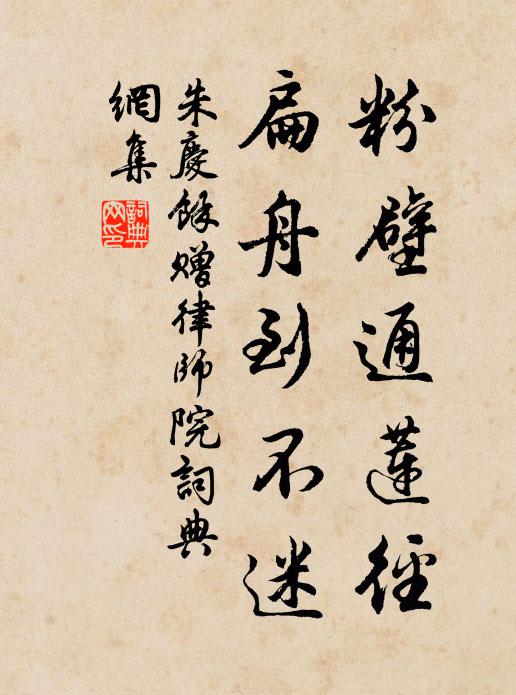 粉壁通蓮徑
扁舟到不迷
朱慶餘贈律師院詞典
網集
詞典
网印